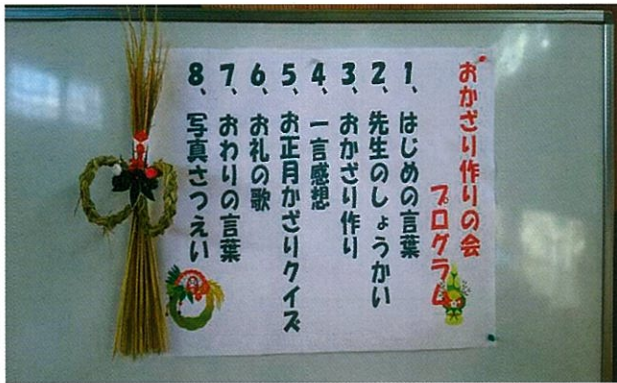 おかざり作りの会
プログラム
1、はじめの言葉
2、先生のしょうかい
3、おかざり作り
4、一言感想
5、お正月かざりクイズ
6、お礼の歌
7、おわりの言葉
8、写真さつえい